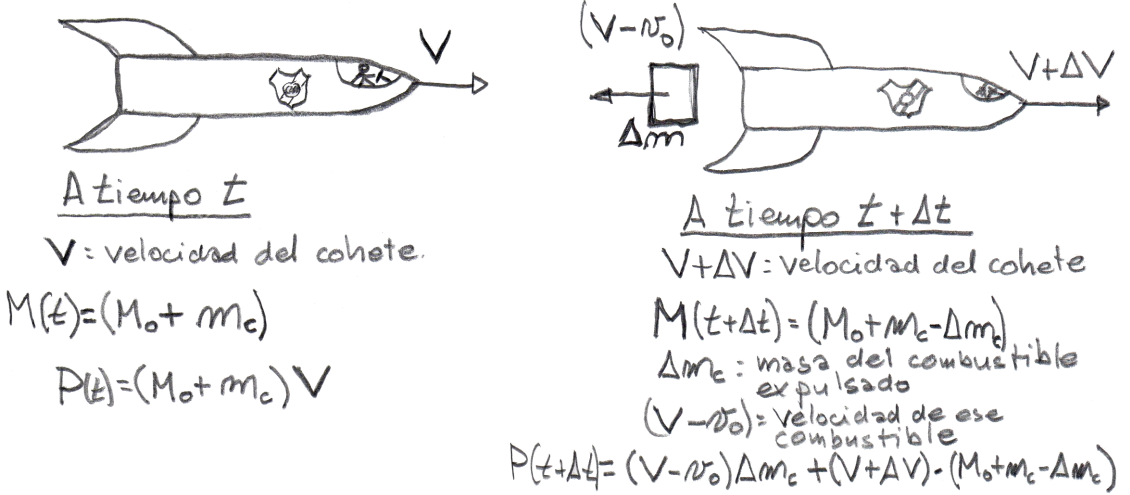 V
A tiempo t
V = velocidad del cohete.
M(t)=(M₀+ m_c)
P(t)=(M₀+m_c)V
(V-v₀)
Δm
V+ΔV
A tiempo t+Δt
V+ΔV: velocidad del cohete
M(t+Δt) = (M₀+m_c-Δm_c)
Δm_c : masa del combustible
expulsado
(V-v₀)= velocidad de ese
combustible
P(t+Δt)= (V-v₀)Δm_c +(V+ΔV)·(M₀+m_c-Δm_c)